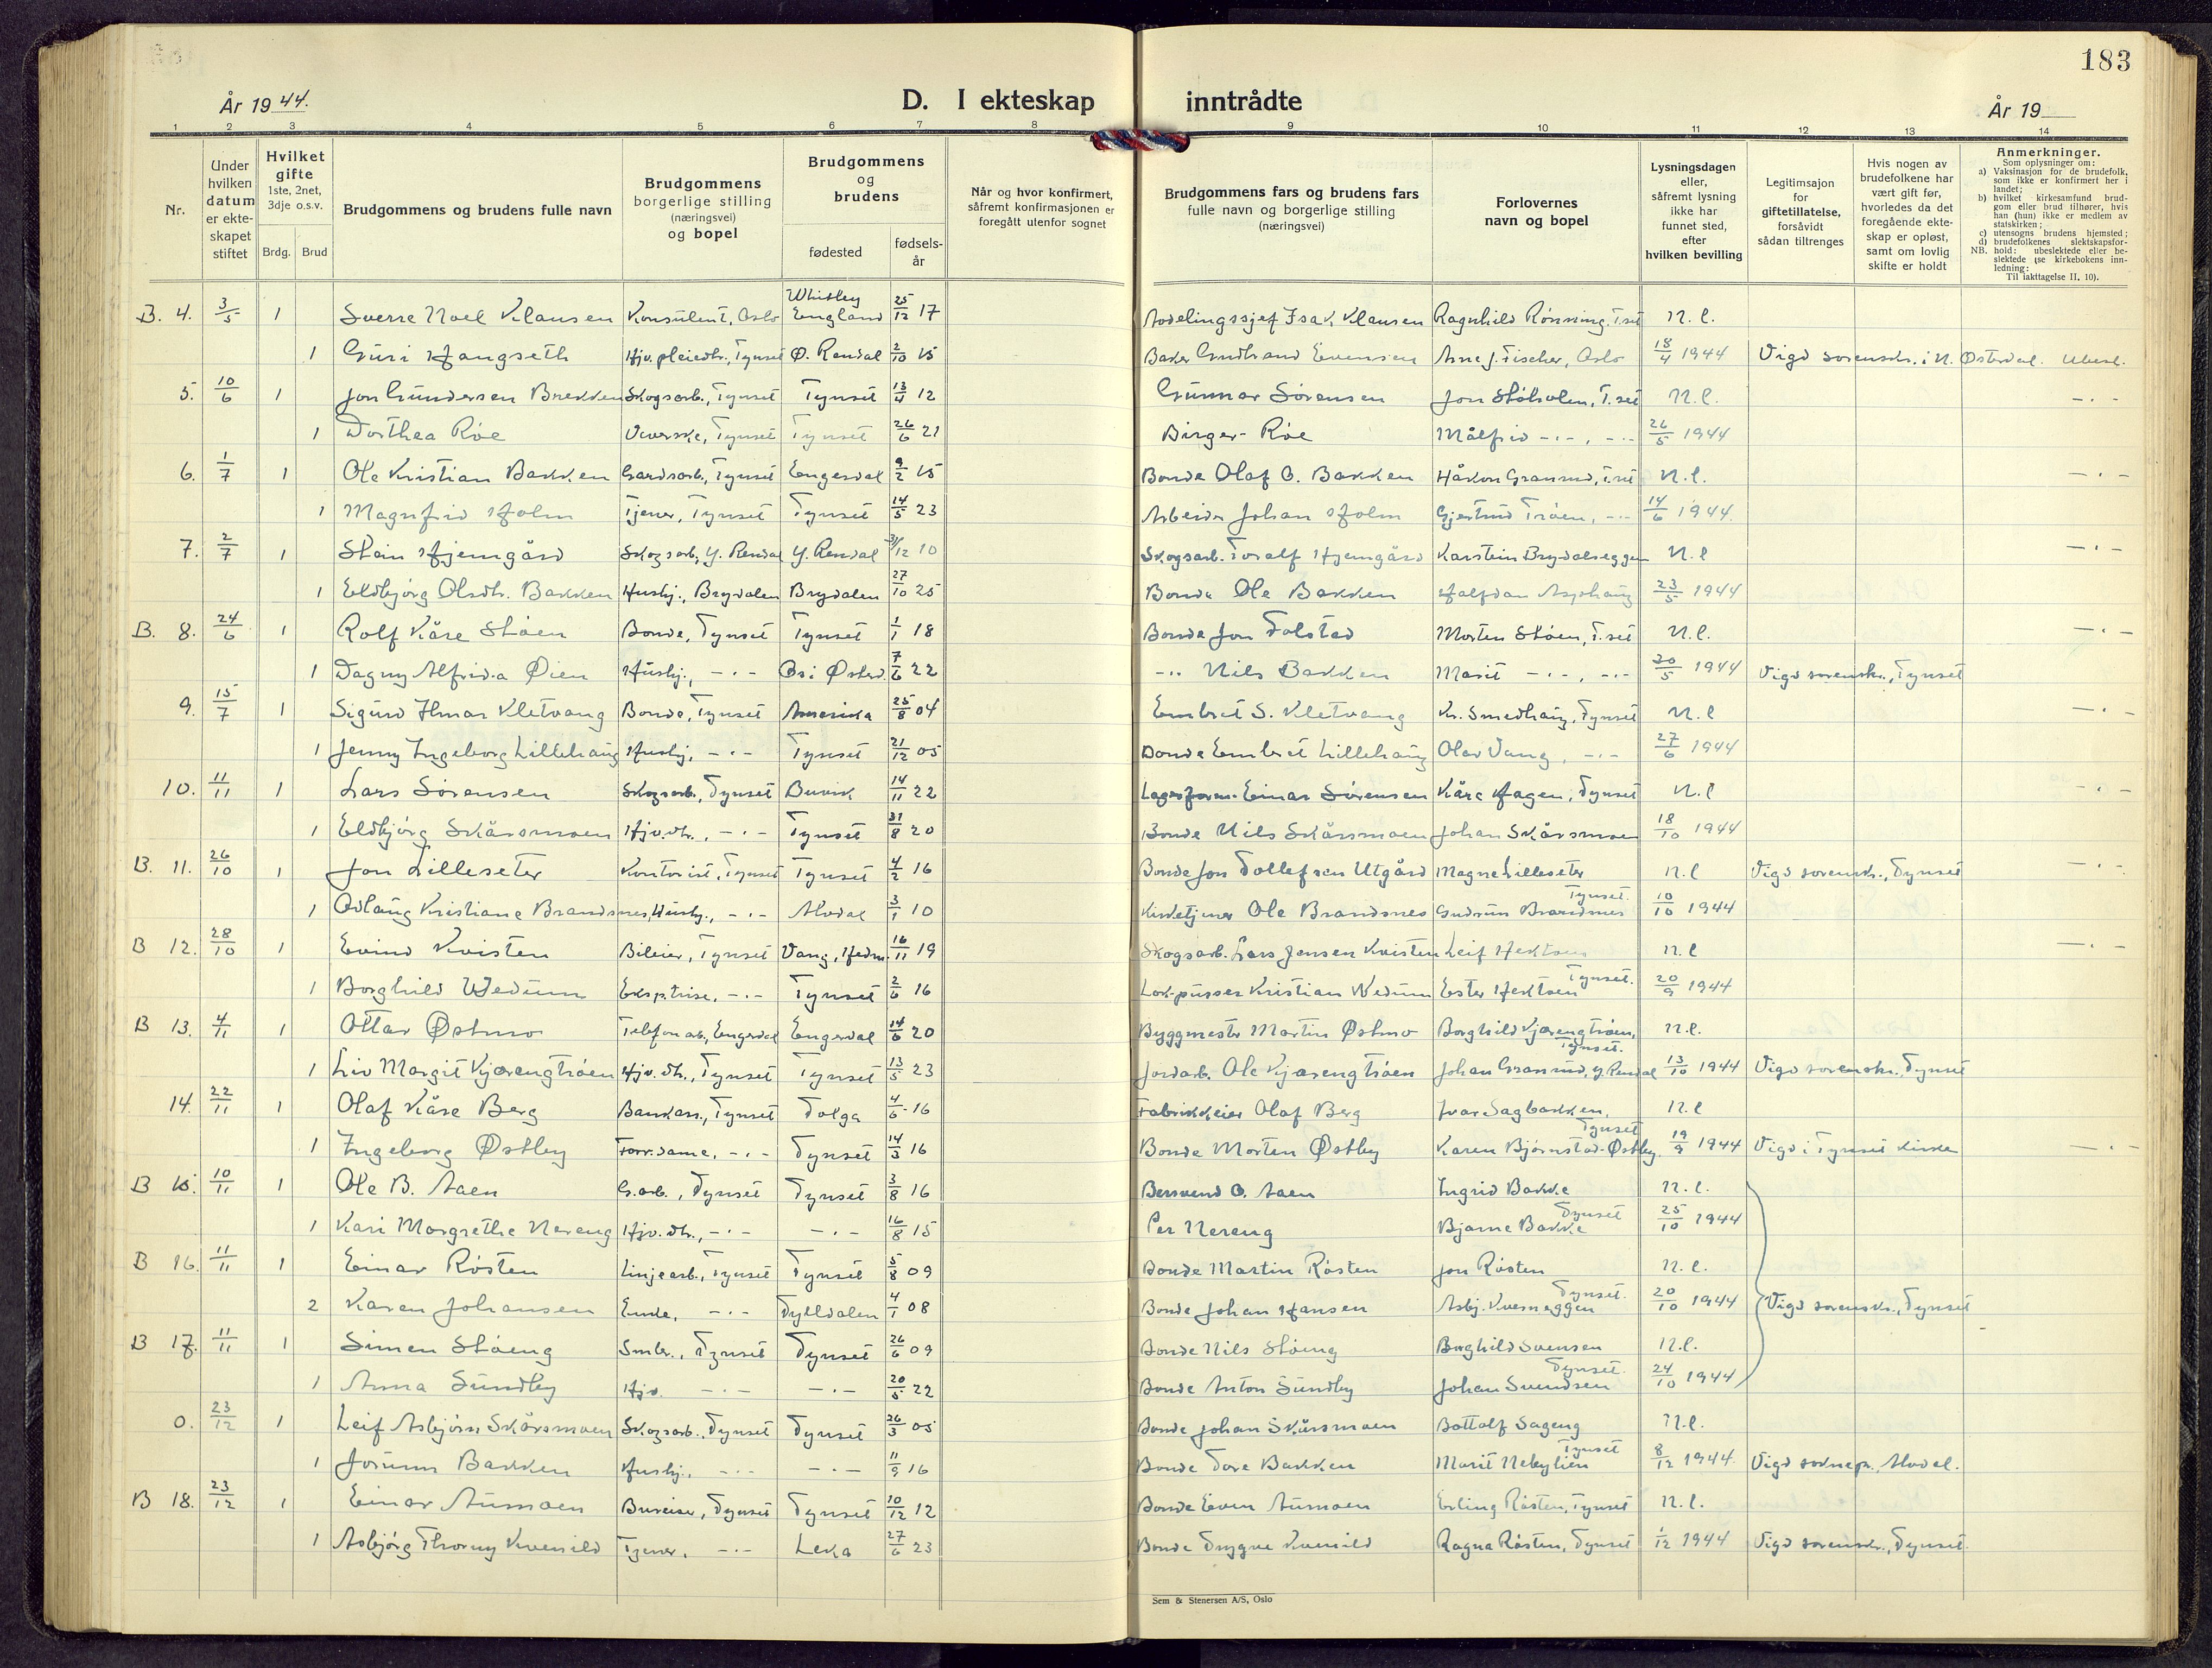 183
År 1944.
D. I ekteskap inntrådte
År 19
1 2 3 4 5 6 7 8 9 10 11 12 13 14
Nr.
Under hvilken datum er ekteskapet stiftet
Hvilket gifte 1ste, 2net, 3dje o.s.v.
Brdg. Brud
Brudgommens og brudens fulle navn
Brudgommens borgerlige stilling (næringsvei) og bopel
Brudgommens og brudens
fødested
fødselsår
Når og hvor konfirmert, såfremt konfirmasjonen er foregått utenfor sognet
Brudgommens fars og brudens fars fulle navn og borgerlige stilling (næringsvei)
Forlovernes navn og bopel
Lysningsdagen eller, såfremt lysning ikke har funnet sted, efter hvilken bevilling
Legitimsajon for giftetillatelse, forsåvidt sådan tiltrenges
Hvis nogen av brudefolkene har vært gift før, hvorledes da det foregående ekteskap er opløst, samt om lovlig skifte er holdt
Anmerkninger.
Som oplysninger om:
a) Vaksinasjon for de brudefolk, som ikke er konfirmert her i landet;
b) hvilket kirkesamfund brudgom eller brud tilhører, hvis han (hun) ikke er medlem av statskirken;
c) utensogns brudens hjemsted;
d) brudefolkenes slektskapsforhold: ubeslektede eller beslektede (se kirkebokens innledning:
NB. Til iakttagelse II. 10).
B. 4. 3/5 1 Sverre Noel Klausen Konsulent, Oslo England 25/12 17 Avdelingssjef Isak Klausen Ragnhild Rönning, T.set n.l.
1 Guri Hangseth Hjv. pleiedtr., Tynset Ø. Rendal 2/10 15 Baker Gudbrand Evensen Arne J. Fischer, Oslo 18/4 1944 Vigd sorenskr. i N. Østerdal. Ubesl.
5. 10/6 1 Jon Gundersen Brekken Skogsarb., Tynset Tynset 13/4 12 Gunnar Sörensen Jon Stöholen, T.set n.l. -"-
1 Dorthea Röe Veverske, Tynset Tynset 26/6 21 Birger Röe Målfrid -"-, -"- 26/5 1944
6. 1/7 1 Ole Kristian Bakken Gardsarb., Tynset Engerdal 9/2 15 Bonde Olaf O. Bakken Håkon Granrud, T.set n.l. -"-
1 Magnfrid Holm Tjener, Tynset Tynset 14/5 23 Arbeider Johan Holm Gjertrud Tröen, -"- 14/6 1944.
7. 2/7 1 Stein Hjemgård Skogsarb., Y. Rendal Y. Rendal 31/12 10 Skogsarb. Toralf Hjemgård Karstein Brydalseggen n.l -"-
1 Eldbjörg Olsdtr. Bakken Hushj., Brydalen Brydalen 27/10 25 Bonde Ole Bakken Halfdan Asphaug 23/5 1944
B. 8. 24/6 1 Rolf Kåre Stöen Bonde, Tynset Tynset 1/1 18 Bonde Jon Tolstad Morten Stöen, T.set n.l. -"-
1 Dagny Alfrida Øien Hushj., -"- Os i Østerd. 7/6 22 -"- Nils Bakken Marit -"-, -"- 20/5 1944 Vigd sorenskr., Tynset
9. 15/7 1 Sigurd Ilmar Kletvang Bonde, Tynset Amerika 25/8 04 Embret S. Kletvang Kr. Smedhaug, Tynset n.l -"-
1 Jenny Ingeborg Lillehaug Hushj. -"- Tynset 21/12 05 Bonde Embret Lillehaug Olav Vang, -"- 27/6 1944
10. 11/11 1 Lars Sörensen Skogsarb., Tynset Buvik 14/11 22 Lagerforem. Einar Sörensen Kåre Hagen, Tynset n.l -"-
1 Eldbjörg Skårsmoen Hjv.dtr., -"- Tynset 31/8 20 Bonde Nils Skårsmoen Johan Skårsmoen 18/10 1944
B. 11. 26/10 1 Jon Lilleseter Kontorist, Tynset Tynset 4/2 16 Bonde Jon Tollefsen Utgård Magne Lilleseter n.l Vigd sorenskr., Tynset -"-
1 Odlaug Kristiane Brandsnes, Hushj., -"- Alvdal 3/1 10 Kirketjener Ole Brandsnes Gudrun Brandsnes Tynset. 10/10 1944
B 12. 28/10 1 Evind Kvisten Bileier, Tynset Vang, Hedm. 16/11 19 Skogsarb. Lars Jensen Kvisten Leif Hektoen n.l -"-
1 Borghild Wedum Eksp.trise, -"- Tynset 2/6 16 Lok-pusser Kristian Wedum Ester Hektoen Tynset. 20/9 1944
B 13. 4/11 1 Ottar Østmo Telefonarb., Engerdal Engerdal 14/6 20 Byggmester Martin Østmo Borghild Kjærengtröen, Tynset. n.l.
1 Liv Margit Kjærengtröen Hjv. dtr., Tynset Tynset 13/5 23 Jordarb. Ole Kjærengtröen Johan Granrud, Y. Rendal 13/10 1944 Vigd sorenskr., Tynset
14. 22/11 1 Olaf Kåre Berg Bankass., Tynset Tolga 4/6 16 Fabrikkeier Olaf Berg Ivar Sagbakken, Tynset n.l
1 Ingeborg Østby Forr.dame, -"- Tynset 14/3 16 Bonde Morten Østby Karen Bjørnstad-Østby. 19/9 1944 Vigd i Tynset kirke -"-
B 15. 10/11 1 Ole B. Aaen G.arb., Tynset Tynset 3/8 16 Bersvend O. Aaen Ingrid Bakke n.l.
1 Kari Margrethe Nereng Hjv. dtr., -"- -"- 16/8 15 Per Nereng Bjarne Bakke Tynset 25/10 1944
B 16. 11/11 1 Einar Rösten Linjearb., Tynset Tynset 5/8 09 Bonde Martin Rösten Jon Rösten n.l.
2 Karen Johansen Enke, -"- Tylldalen 4/1 08 Bonde Johan Hansen Asbj. Kverneggen Tynset. 20/10 1944 Vigd sorenskr., Tynset
B 17. 11/11 1 Simen Stöeng Smbr., Tynset Tynset 26/6 09 Bonde Nils Stöeng Borghild Svensen n.l.
1 Anna Sundby Hjv. -"- -"- 20/5 22 Bonde Anton Sundby Johan Svendsen Tynset. 24/10 1944
0. 23/12 1 Leif Asbjörn Skårsmoen Skogsarb., Tynset Tynset 26/3 05 Bonde Johan Skårsmoen Bottolf Sageng n.l.
1 Jorunn Bakken Hushj., -"- -"- 11/9 16 Bonde Tore Bakken Marit Nebylien Tynset 8/12 1944. Vigd soknepr., Alvdal.
B 18. 23/12 1 Einar Aumoen Bureiser, Tynset Tynset 10/12 12 Bonde Even Aumoen Erling Rösten, Tynset n.l.
1 Asbjörg Thorny Kvenild Tjener, -"- Leka 27/6 23 Bonde Trygve Kvenild Ragna Rösten, Tynset 1/12 1944 Vigd sorenskr., Tynset.
Sem & Stenersen A/S, Oslo